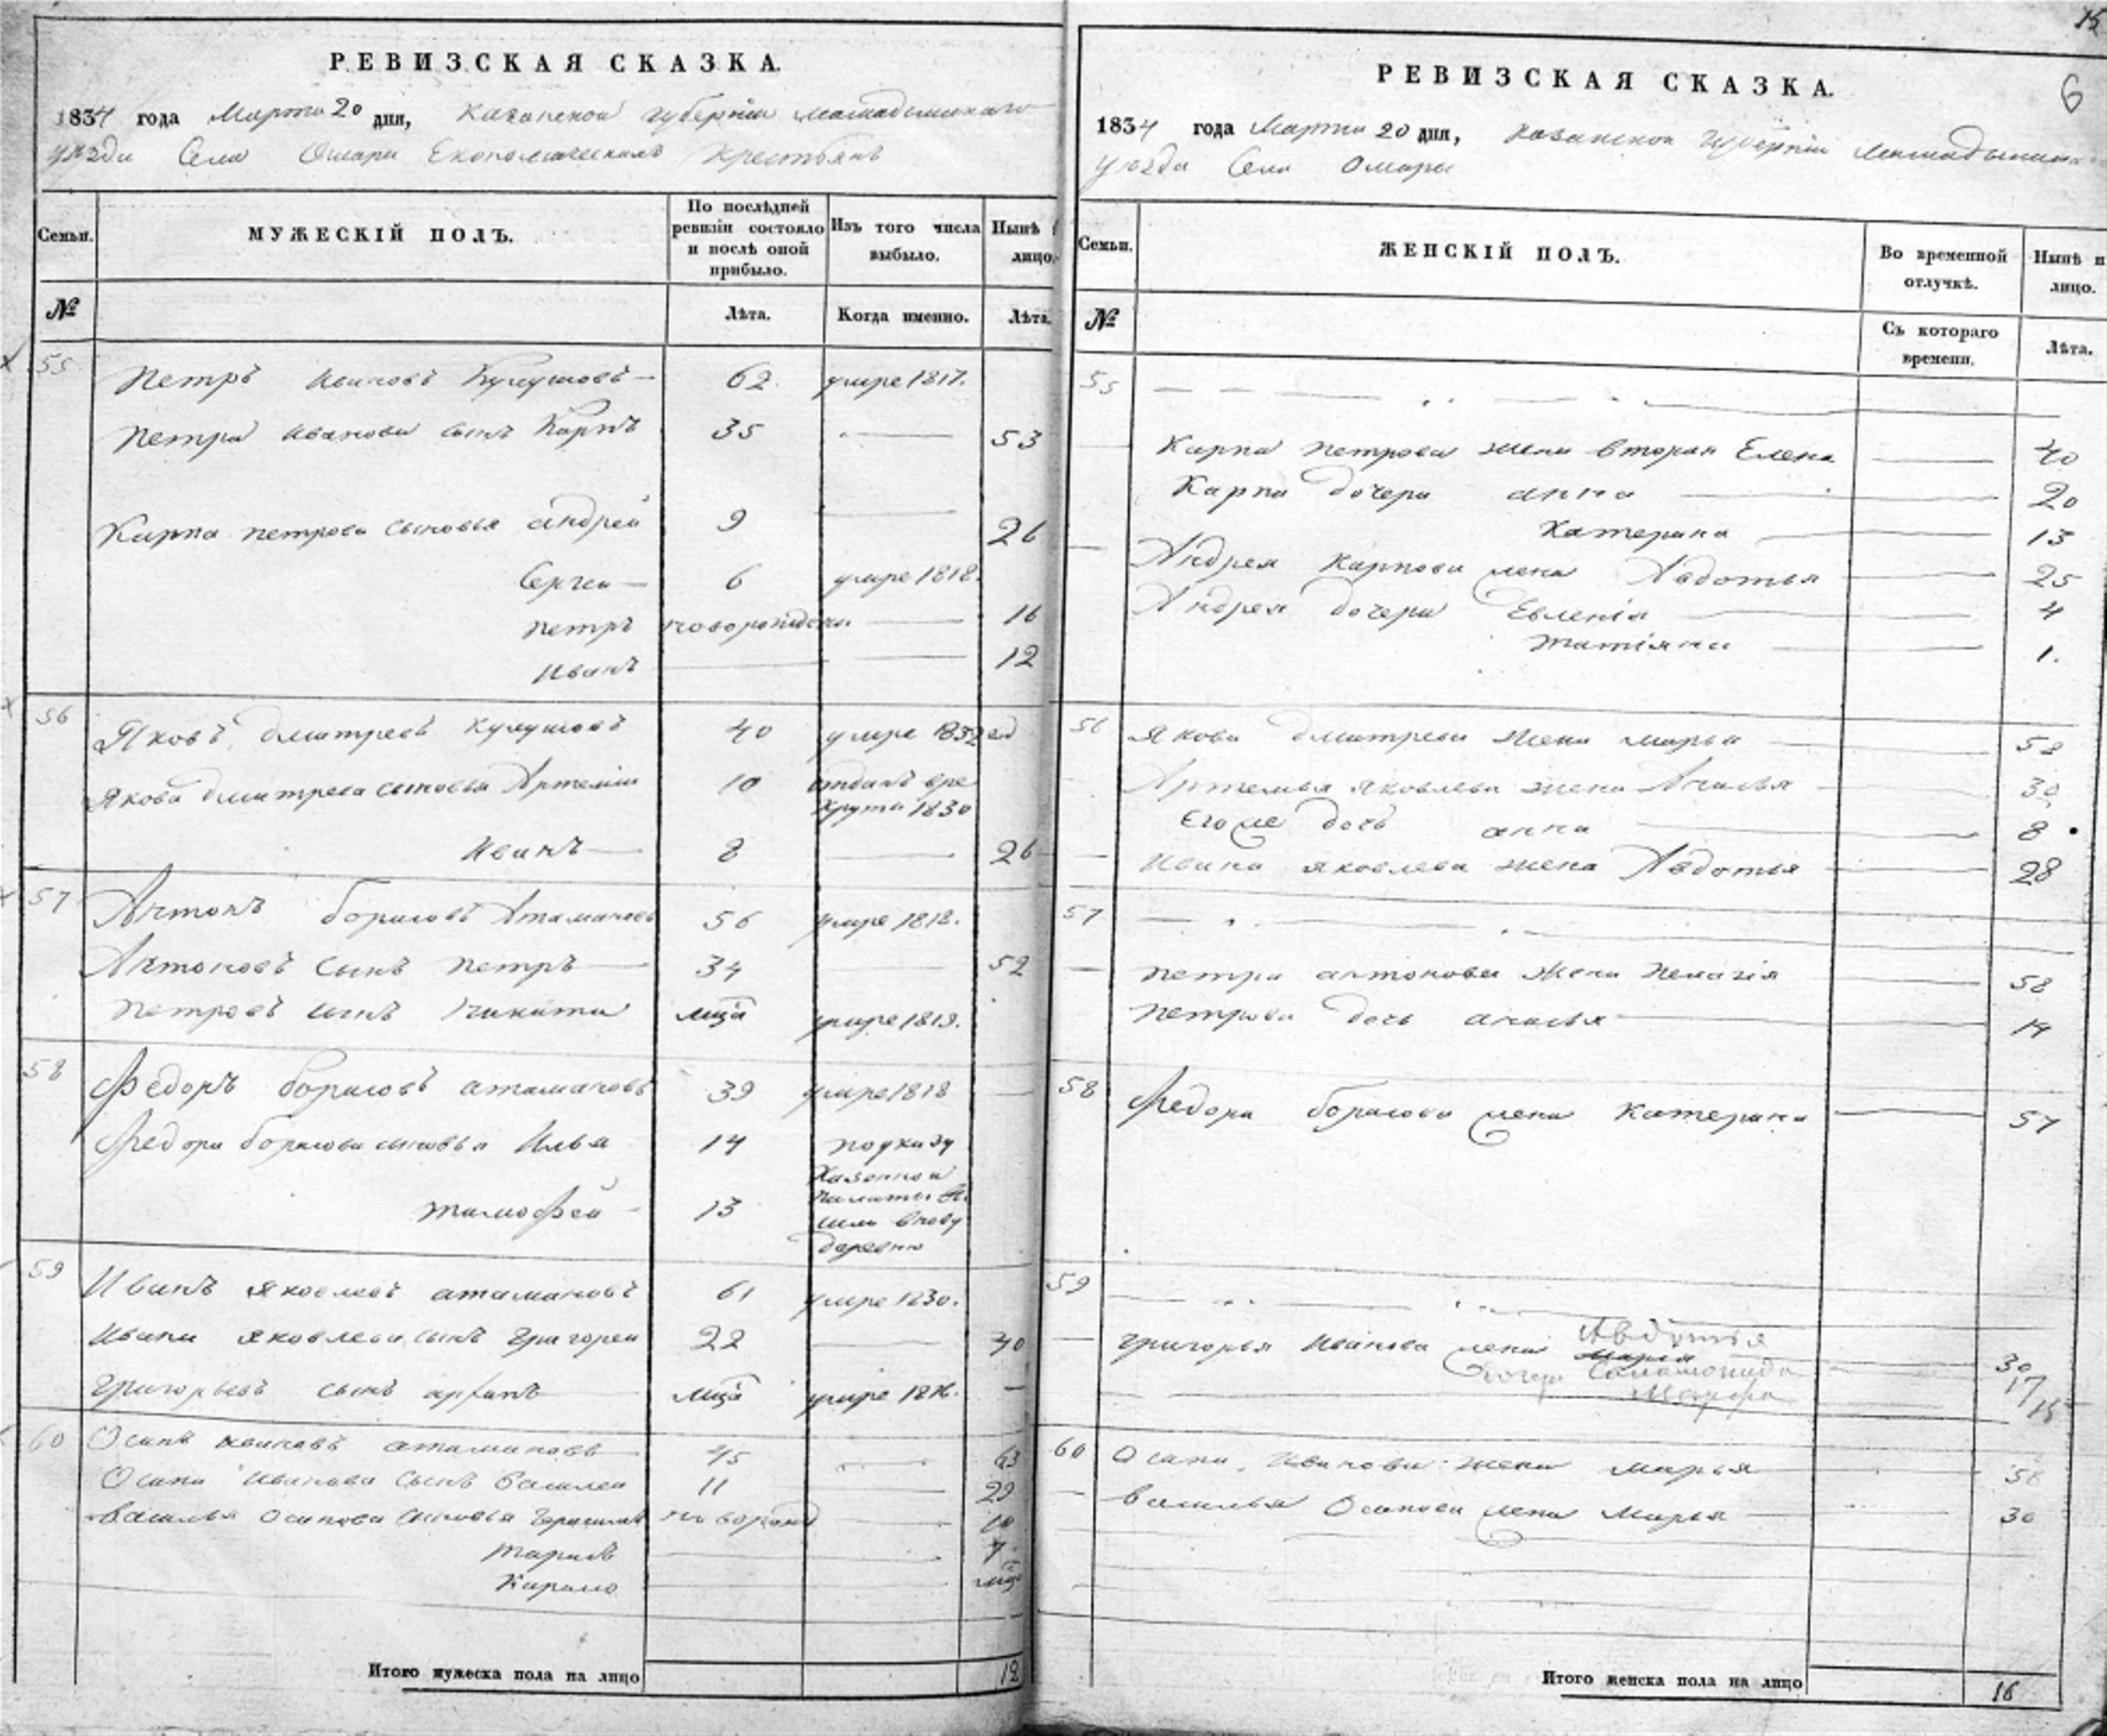 15
РЕВИЗСКАЯ СКАЗКА.
1834 года Марта 20 дня, Казанской губернии Мамадышскаго
уѣзда Села Омари Економическихъ крестьянъ
Семьи. МУЖЕСКІЙ ПОЛЪ. По послѣдней ревизіи состояло и послѣ оной прибыло. Изъ того числа выбыло. Нынѣ лицо.
№ Лѣта. Когда именно. Лѣта.
55 Петръ Ивановъ 62 умре 1817.
Петра Иванова сынъ Карпъ 35 — 53
Карпа Петрова сыновья Андрей 9 — 26
Сергей — 6 умре 1818.
Петръ новорожден. — 16
Иванъ — — 12
56 Яковъ Дмитревъ 40 умре 1832 год
Якова Дмитрева сыновья Артемий 10 отданъ вре
круты 1830
Иванъ — 8 — 26
57 Антонъ Борисовъ Атамановъ 56 умре 1818.
Антоновъ сынъ Петръ — 34 — 52
Петровъ сынъ Никита мца умре 1819.
58 Федоръ Борисовъ Атамановъ 39 умре 1818 —
Федора Борисова сыновья Илья 14 поуказу
Казенной
палаты
вновь
деревню
Тимофей — 13
59 Иванъ Яковлевъ Атамановъ 61 умре 1830.
Ивана Яковлева сынъ Григорей 22 — 40
Григорьевъ сынъ мца умре 1816. —
60 Осипъ Ивановъ Атамановъ 45 — 63
Осипа Иванова сынъ Василей 11 — 29
Василья Осипова сыновья Герасимъ новорожд — 10
Тарасъ — — 7
— — мца
Итого мужеска пола на лицо 12
РЕВИЗСКАЯ СКАЗКА.
6
1834 года Марта 20 дня, Казанской Губерніи Мамадышска
уѣзда Села Омары
Семьи. ЖЕНСКІЙ ПОЛЪ. Во временной отлучкѣ. Нынѣ н лицо.
№ Съ котораго времени. Лѣта.
55 — — — —
— Карпа Петрова жена вторая Елена — 40
Карпа дочери Анна — 20
Катерина — 13
— Андрея Карпова жена Авдотья — 25
Андрея дочери Евленія — 4
Татіяна — 1.
56 Якова Дмитрева жена Марья — 58
Артемья Яковлева жена — 30
Его же дочь Анна — 8
— Ивана Яковлева жена Авдотья — 28
57 — —
— Петра Антонова жена Пелагія — 58
Петрова дочь — 14
58 Федора Борисова жена Катерина — 57
59 — —
— Григорья Иванова жена Авдотья
Марья — 30
дочери Соломонида 17
— — Марфа 15
60 Осипа Иванова жена Марья — 58
— Василья Осипова жена Марья — 30
Итого женска пола на лицо 16